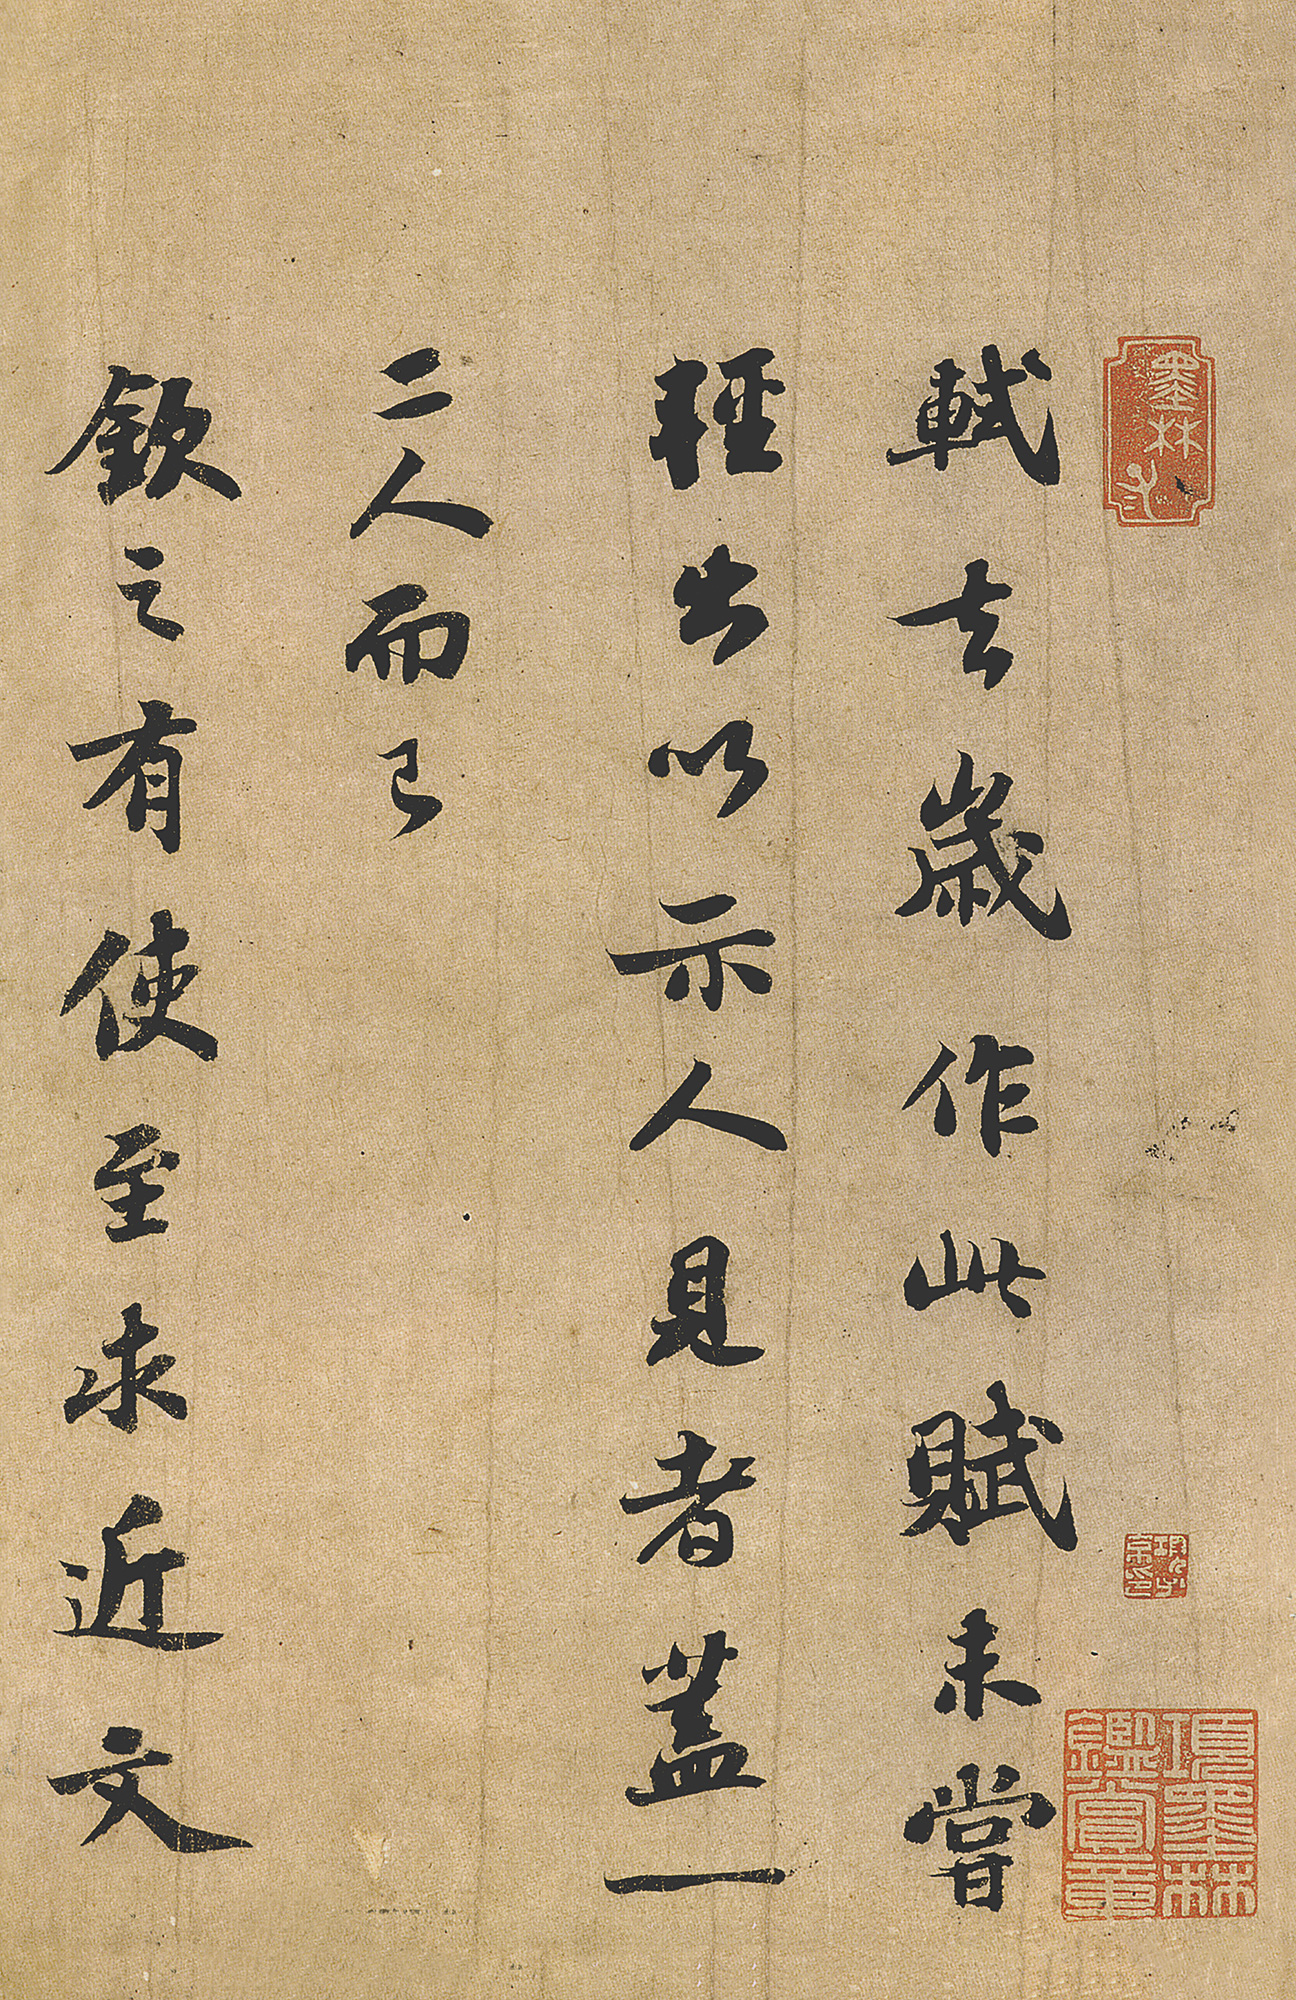 軾去歲作此賦未嘗
輕出以示人見者蓋一
二人而已
欽之有使至求近文
項墨林鑑賞章